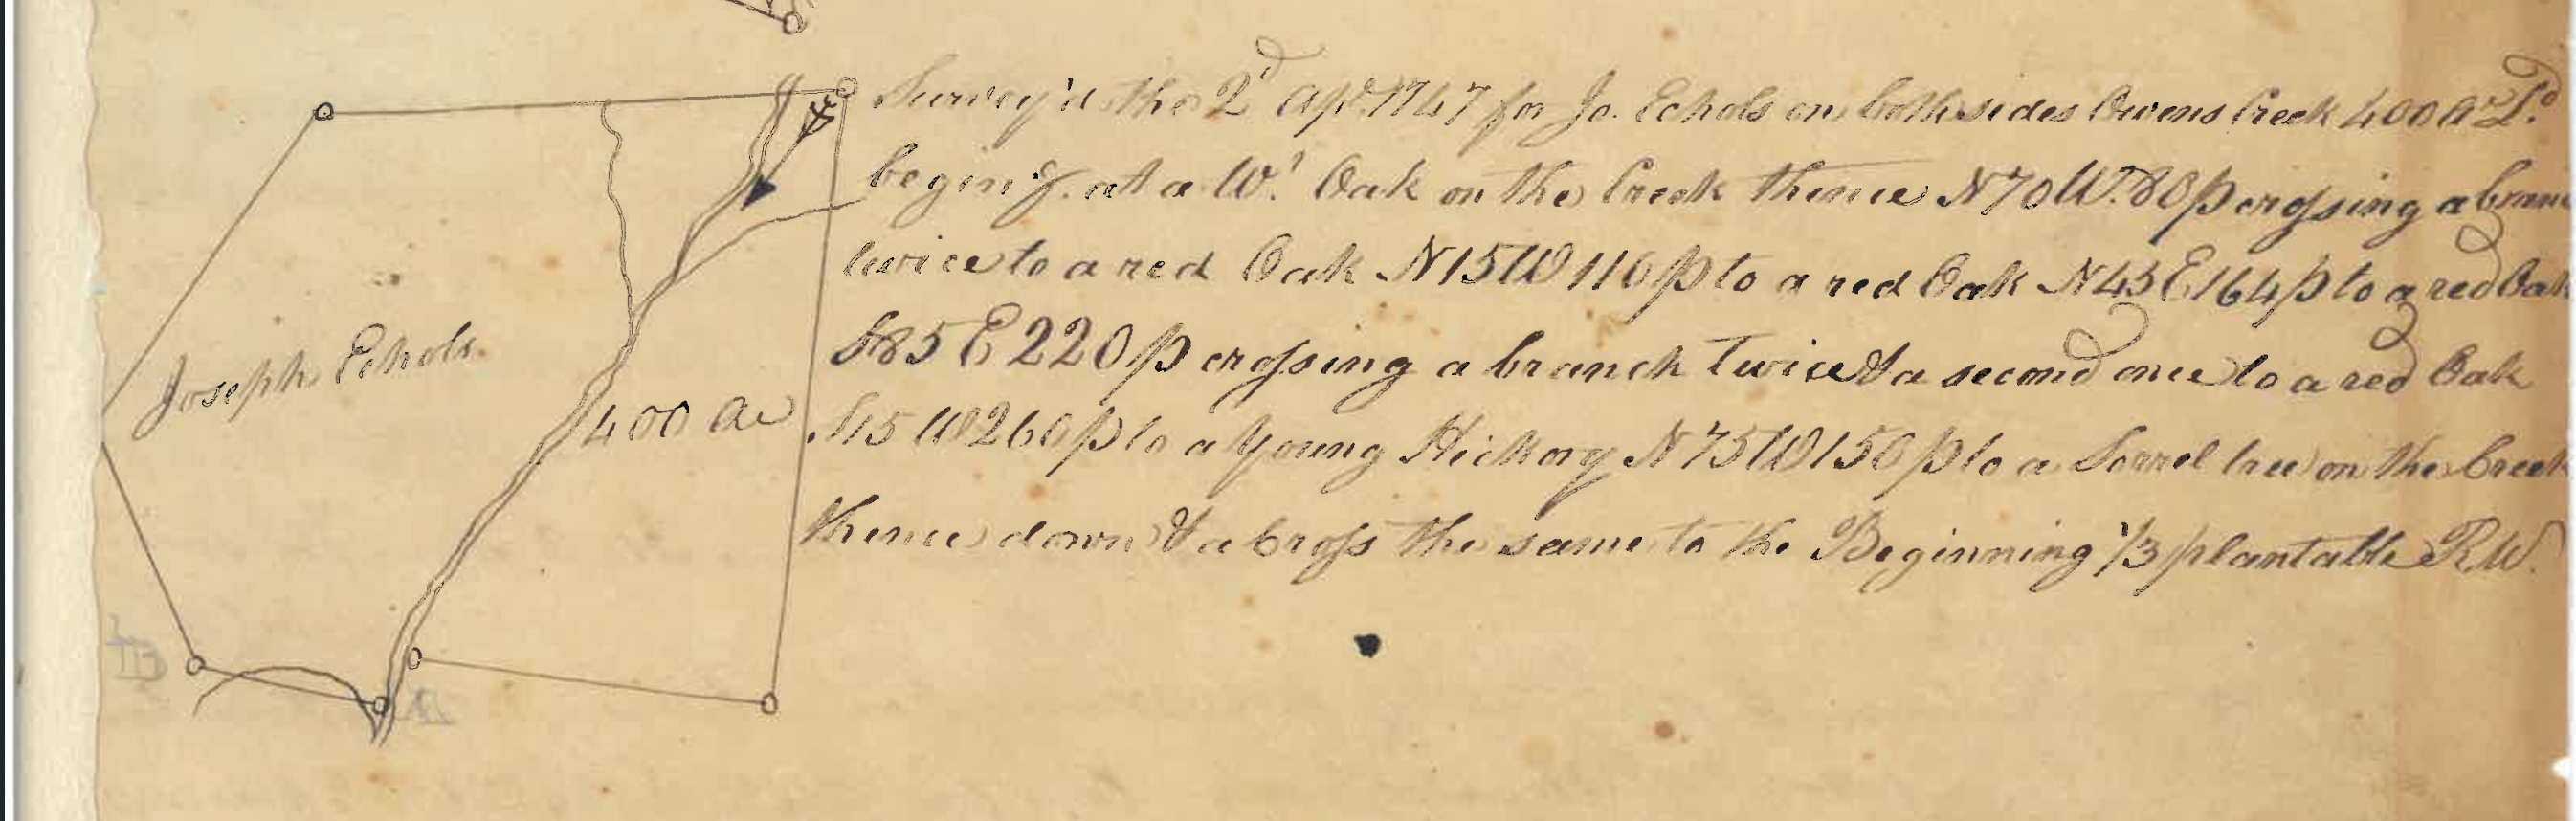 Survey'd the 2d Apr. 1747 for Jo. Echols on both sides Owens Creek 400 Ar Ld.
begin'g. at a W.t Oak on the Creek thence N70W. 80p crossing a bran
twice to a red Oak N15W 110p to a red Oak N43E 164p to a red Oak
S85E 220p crossing a branch Twice & a second once to a red Oak
S15W 260p to a Young Hickory N75W 150p to a Sorrel tree on the Creek
thence down & a Cross the same to the Beginning 1/3 plantable R.W.
Joseph Echols
400 Ac